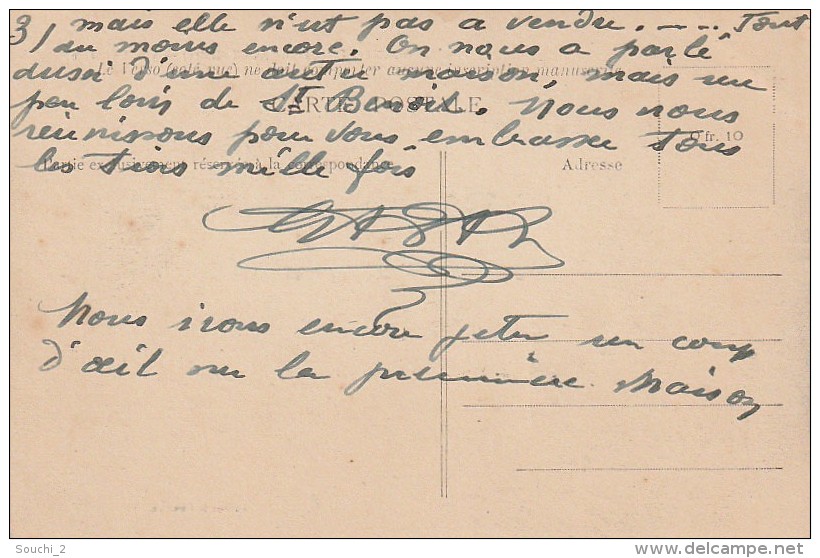 3/ mais elle n'est pas a vendre. _ . _ Tout
du moins encore. On nous a parlé
Le Verso (coté vue) ne doit comporter aucune inscription manuscrite
aussi d'une autre maison, mais un
peu loin de St Benoit. Nous nous
CARTE POSTALE
réunissons pour vous embrasser tous
0 fr. 10
les trois mille fois
Partie exclusivement réservée à la correspondance
Adresse
Nous irons encore jeter un coup
d'œil sur la première Maison
Souchi_2
delcampe.net